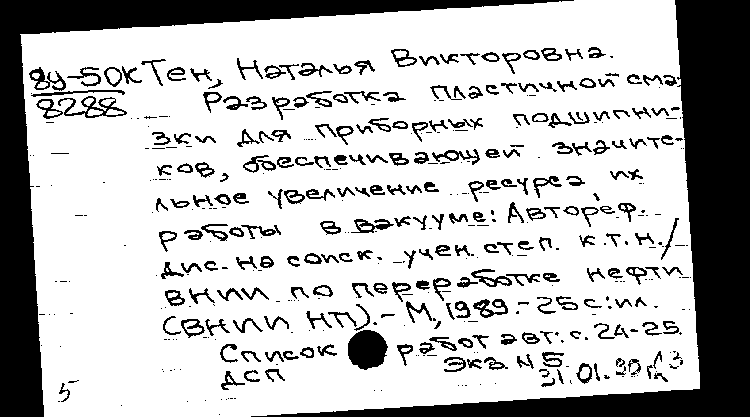 8у-50к Тен, Наталья Викторовна.
8288 Разработка пластичной сма-
зки для приборных подшипни-
ков, обеспечивающей значите-
льное увеличение ресурса их
работы в вакууме: Автореф.
дис. на соиск. учен. степ. к.т.н./
ВНИИ по переработке нефти
(ВНИИ НП).- М., 1989.- 25с.: ил.
Список работ авт.: с. 24-25.
ДСП Экз. N 5
5 31.01.90